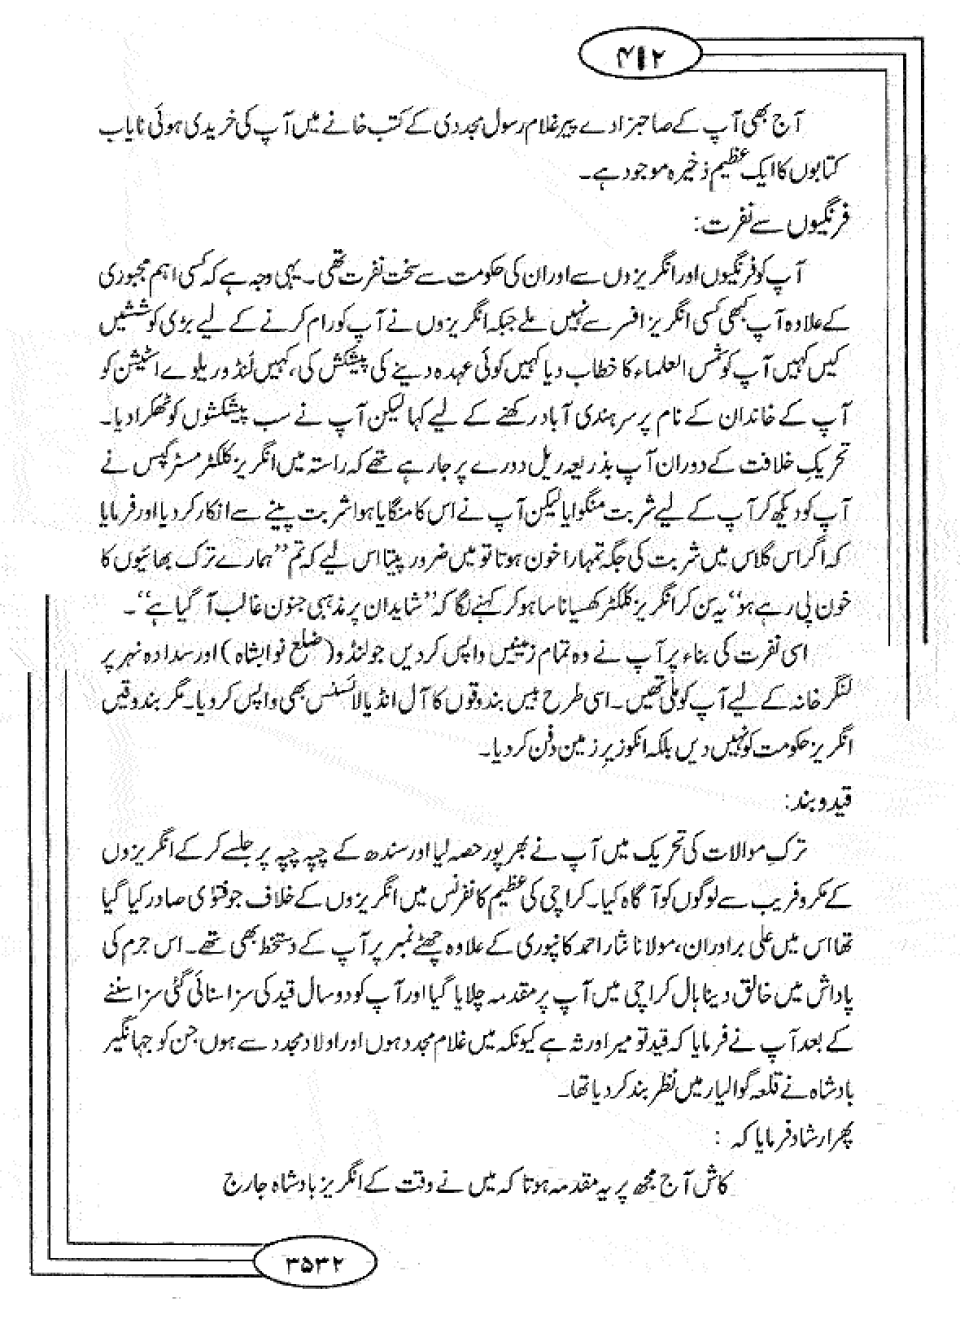 ۴۱۲
آج بھی آپ کے صاحبزادے پیر غلام رسول مجددی کے کتب خانے میں آپ کی خریدی ہوئی نایاب
کتابوں کا ایک عظیم ذخیرہ موجود ہے۔
فرنگیوں سے نفرت:
آپ کو فرنگیوں اور انگریزوں سے اور ان کی حکومت سے سخت نفرت تھی۔ یہی وجہ ہے کہ کسی اہم مجبوری
کے علاوہ آپ کبھی کسی انگریز افسر سے نہیں ملے جبکہ انگریزوں نے آپ کو رام کرنے کے لیے بڑی کوششیں
کیں کہیں آپ کو شمس العلماء کا خطاب دیا کہیں کوئی عہدہ دینے کی پیشکش کی، کہیں لنڈو ریلوے اسٹیشن کو
آپ کے خاندان کے نام پر سرہندی آباد رکھنے کے لیے کہا لیکن آپ نے سب پیشکشوں کو ٹھکرا دیا۔
تحریکِ خلافت کے دوران آپ بذریعہ ریل دورے پر جا رہے تھے کہ راستہ میں انگریز کلکٹر مسٹر گبس نے
آپ کو دیکھ کر آپ کے لیے شربت منگوایا لیکن آپ نے اس کا منگایا ہوا شربت پینے سے انکار کر دیا اور فرمایا
کہ اگر اس گلاس میں شربت کی جگہ تمہارا خون ہوتا تو میں ضرور پیتا اس لیے کہ تم ’’ہمارے ترک بھائیوں کا
خون پی رہے ہو‘‘ یہ سن کر انگریز کلکٹر کھسیانا سا ہو کر کہنے لگا کہ ’’شاید ان پر مذہبی جنون غالب آ گیا ہے‘‘۔
اسی نفرت کی بناء پر آپ نے وہ تمام زمینیں واپس کر دیں جو لنڈو (ضلع نوابشاہ) اور سدادہ نہر پر
لنگر خانہ کے لیے آپ کو ملی تھیں۔ اسی طرح بیس بندوقوں کا آل انڈیا لائسنس بھی واپس کر دیا۔ مگر بندوقیں
انگریز حکومت کو نہیں دیں بلکہ انکو زیرِ زمین دفن کر دیا۔
قید و بند:
ترکِ موالات کی تحریک میں آپ نے بھرپور حصہ لیا اور سندھ کے چپہ چپہ پر جلسے کر کے انگریزوں
کے مکر و فریب سے لوگوں کو آگاہ کیا۔ کراچی کی عظیم کانفرنس میں انگریزوں کے خلاف جو فتوٰی صادر کیا گیا
تھا اس میں علی برادران، مولانا نثار احمد کانپوری کے علاوہ چھٹے نمبر پر آپ کے دستخط بھی تھے۔ اس جرم کی
پاداش میں خالق دینا ہال کراچی میں آپ پر مقدمہ چلایا گیا اور آپ کو دو سال قید کی سزا سنائی گئی سزا سننے
کے بعد آپ نے فرمایا کہ قید تو میرا ورثہ ہے کیونکہ میں غلام مجدد ہوں اور اولاد مجدد سے ہوں جن کو جہانگیر
بادشاہ نے قلعہ گوالیار میں نظر بند کر دیا تھا۔
پھر ارشاد فرمایا کہ :
کاش آج مجھ پر یہ مقدمہ ہوتا کہ میں نے وقت کے انگریز بادشاہ جارج
۳۵۳۲